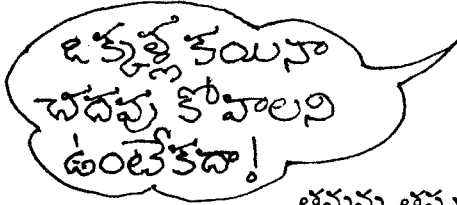 ఒక్కళ్ల కయినా
చదవు కోవాలని
ఉంటేకదా!